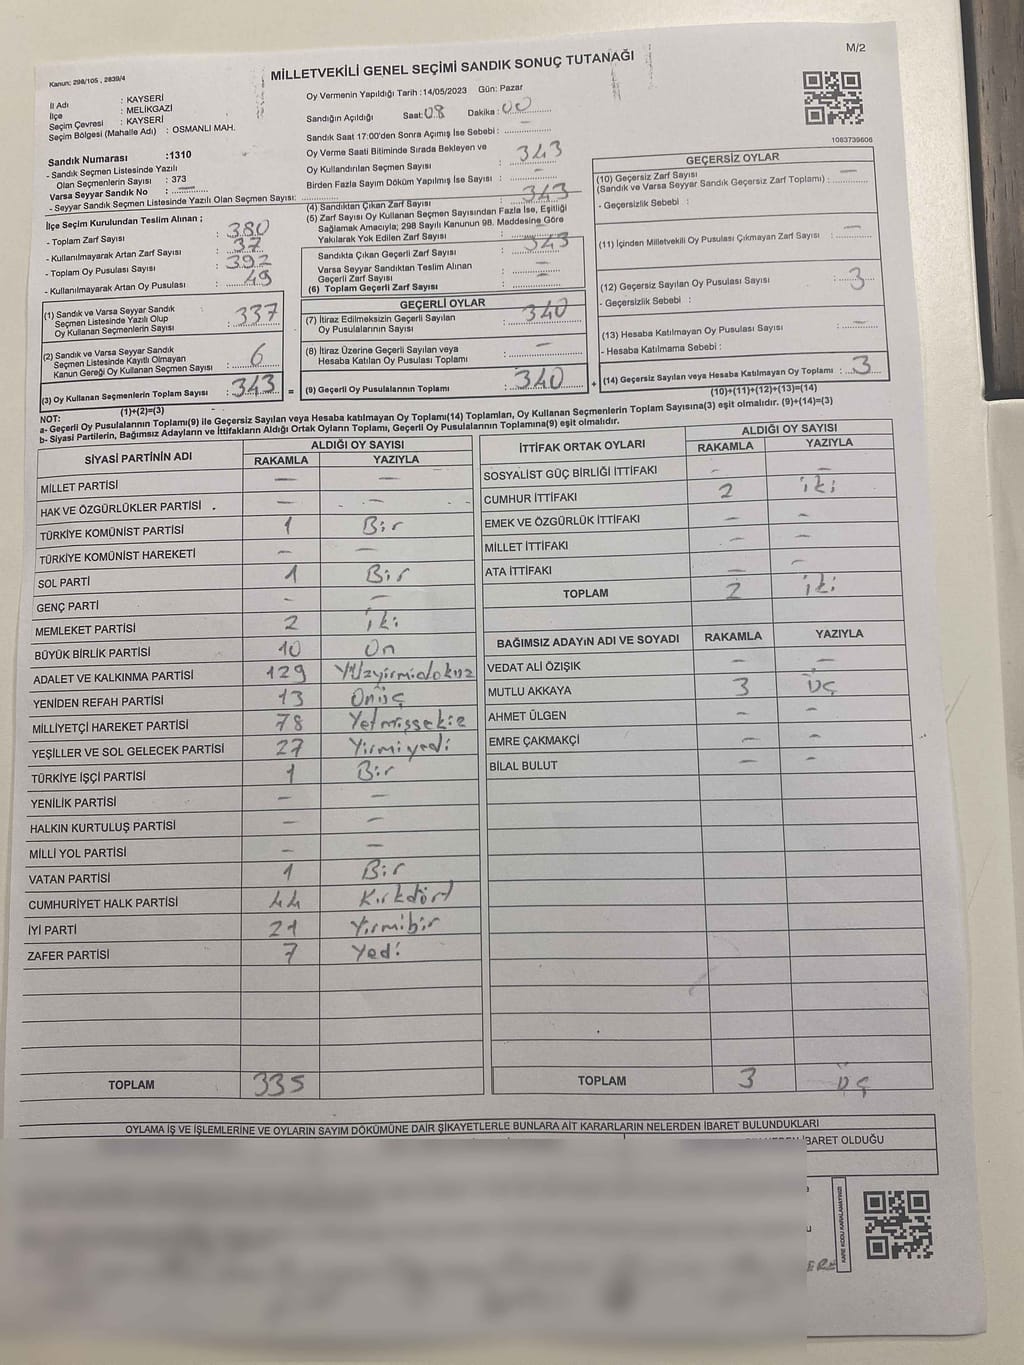 Kanun: 298/105 , 2839/4
M/2
MİLLETVEKİLİ GENEL SEÇİMİ SANDIK SONUÇ TUTANAĞI
İl Adı : KAYSERİ
İlçe : MELİKGAZİ
Seçim Çevresi : KAYSERİ
Seçim Bölgesi (Mahalle Adı) : OSMANLI MAH.
Sandık Numarası :1310
- Sandık Seçmen Listesinde Yazılı
Olan Seçmenlerin Sayısı : 373
Varsa Seyyar Sandık No : —
- Seyyar Sandık Seçmen Listesinde Yazılı Olan Seçmen Sayısı:
İlçe Seçim Kurulundan Teslim Alınan ;
- Toplam Zarf Sayısı : 380
- Kullanılmayarak Artan Zarf Sayısı : 37
- Toplam Oy Pusulası Sayısı : 392
- Kullanılmayarak Artan Oy Pusulası : 49
(1) Sandık ve Varsa Seyyar Sandık
Seçmen Listesinde Yazılı Olup
Oy Kullanan Seçmenlerin Sayısı : 337
(2) Sandık ve Varsa Seyyar Sandık
Seçmen Listesinde Kayıtlı Olmayan
Kanun Gereği Oy Kullanan Seçmen Sayısı : 6
(3) Oy Kullanan Seçmenlerin Toplam Sayısı : 343 =
(1)+(2)=(3)
Oy Vermenin Yapıldığı Tarih :14/05/2023 Gün: Pazar
Sandığın Açıldığı Saat: 08 Dakika : 00
Sandık Saat 17:00'den Sonra Açımış İse Sebebi : —
Oy Verme Saati Bitiminde Sırada Bekleyen ve
Oy Kullandırılan Seçmen Sayısı : 343
Birden Fazla Sayım Döküm Yapılmış İse Sayısı : —
(4) Sandıktan Çıkan Zarf Sayısı : 343
(5) Zarf Sayısı Oy Kullanan Seçmen Sayısından Fazla İse, Eşitliği
Sağlamak Amacıyla; 298 Sayılı Kanunun 98. Maddesine Göre
Yakılarak Yok Edilen Zarf Sayısı : —
Sandıkta Çıkan Geçerli Zarf Sayısı : 343
Varsa Seyyar Sandıktan Teslim Alınan
Geçerli Zarf Sayısı : —
(6) Toplam Geçerli Zarf Sayısı : —
GEÇERLİ OYLAR
(7) İtiraz Edilmeksizin Geçerli Sayılan
Oy Pusulalarının Sayısı : 340
(8) İtiraz Üzerine Geçerli Sayılan veya
Hesaba Katılan Oy Pusulası Toplamı : —
(9) Geçerli Oy Pusulalarının Toplamı : 340 +
1083739606
GEÇERSİZ OYLAR
(10) Geçersiz Zarf Sayısı
(Sandık ve Varsa Seyyar Sandık Geçersiz Zarf Toplamı) : —
- Geçersizlik Sebebi :
(11) İçinden Milletvekili Oy Pusulası Çıkmayan Zarf Sayısı : —
(12) Geçersiz Sayılan Oy Pusulası Sayısı : 3
- Geçersizlik Sebebi :
(13) Hesaba Katılmayan Oy Pusulası Sayısı : —
- Hesaba Katılmama Sebebi :
(14) Geçersiz Sayılan veya Hesaba Katılmayan Oy Toplamı : 3
(10)+(11)+(12)+(13)=(14)
NOT:
a- Geçerli Oy Pusulalarının Toplamı(9) ile Geçersiz Sayılan veya Hesaba katılmayan Oy Toplamı(14) Toplamları, Oy Kullanan Seçmenlerin Toplam Sayısına(3) eşit olmalıdır. (9)+(14)=(3)
b- Siyasi Partilerin, Bağımsız Adayların ve İttifakların Aldığı Ortak Oyların Toplamı, Geçerli Oy Pusulalarının Toplamına(9) eşit olmalıdır.
SİYASİ PARTİNİN ADI ALDIĞI OY SAYISI
RAKAMLA YAZIYLA
MİLLET PARTİSİ — —
HAK VE ÖZGÜRLÜKLER PARTİSİ — —
TÜRKİYE KOMÜNİST PARTİSİ 1 Bir
TÜRKİYE KOMÜNİST HAREKETİ — —
SOL PARTİ 1 Bir
GENÇ PARTİ — —
MEMLEKET PARTİSİ 2 iki
BÜYÜK BİRLİK PARTİSİ 10 On
ADALET VE KALKINMA PARTİSİ 129 Yüzyirmidokuz
YENİDEN REFAH PARTİSİ 13 Onüç
MİLLİYETÇİ HAREKET PARTİSİ 78 Yetmişsekiz
YEŞİLLER VE SOL GELECEK PARTİSİ 27 Yirmiyedi
TÜRKİYE İŞÇİ PARTİSİ 1 Bir
YENİLİK PARTİSİ — —
HALKIN KURTULUŞ PARTİSİ — —
MİLLİ YOL PARTİSİ — —
VATAN PARTİSİ 1 Bir
CUMHURİYET HALK PARTİSİ 44 Kırkdört
İYİ PARTİ 21 Yirmibir
ZAFER PARTİSİ 7 Yedi
TOPLAM 335
İTTİFAK ORTAK OYLARI ALDIĞI OY SAYISI
RAKAMLA YAZIYLA
SOSYALİST GÜÇ BİRLİĞİ İTTİFAKI — —
CUMHUR İTTİFAKI 2 iki
EMEK VE ÖZGÜRLÜK İTTİFAKI — —
MİLLET İTTİFAKI — —
ATA İTTİFAKI — —
TOPLAM 2 iki
BAĞIMSIZ ADAYIN ADI VE SOYADI RAKAMLA YAZIYLA
VEDAT ALİ ÖZIŞIK — —
MUTLU AKKAYA 3 üç
AHMET ÜLGEN — —
EMRE ÇAKMAKÇİ — —
BİLAL BULUT — —
TOPLAM 3 üç
OYLAMA İŞ VE İŞLEMLERİNE VE OYLARIN SAYIM DÖKÜMÜNE DAİR ŞİKAYETLERLE BUNLARA AİT KARARLARIN NELERDEN İBARET BULUNDUKLARI
İBARET OLDUĞU
KARE KODU KARALAMAYINIZ!